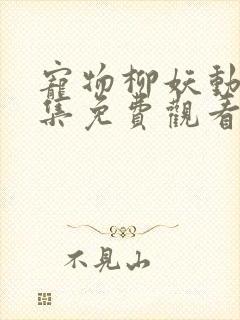 寵物柳妖動
集免費觀看
不見山